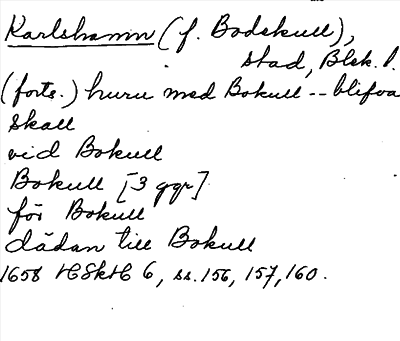 Karlshamn (f. Bodekull),
stad, Blek. l.
(forts.) huru med Bokull -- blifva
skall
vid Bokull
Bokull [3 ggr]
för Bokull
dädan till Bokull
1658 HSkH 6, ss. 156, 157, 160.